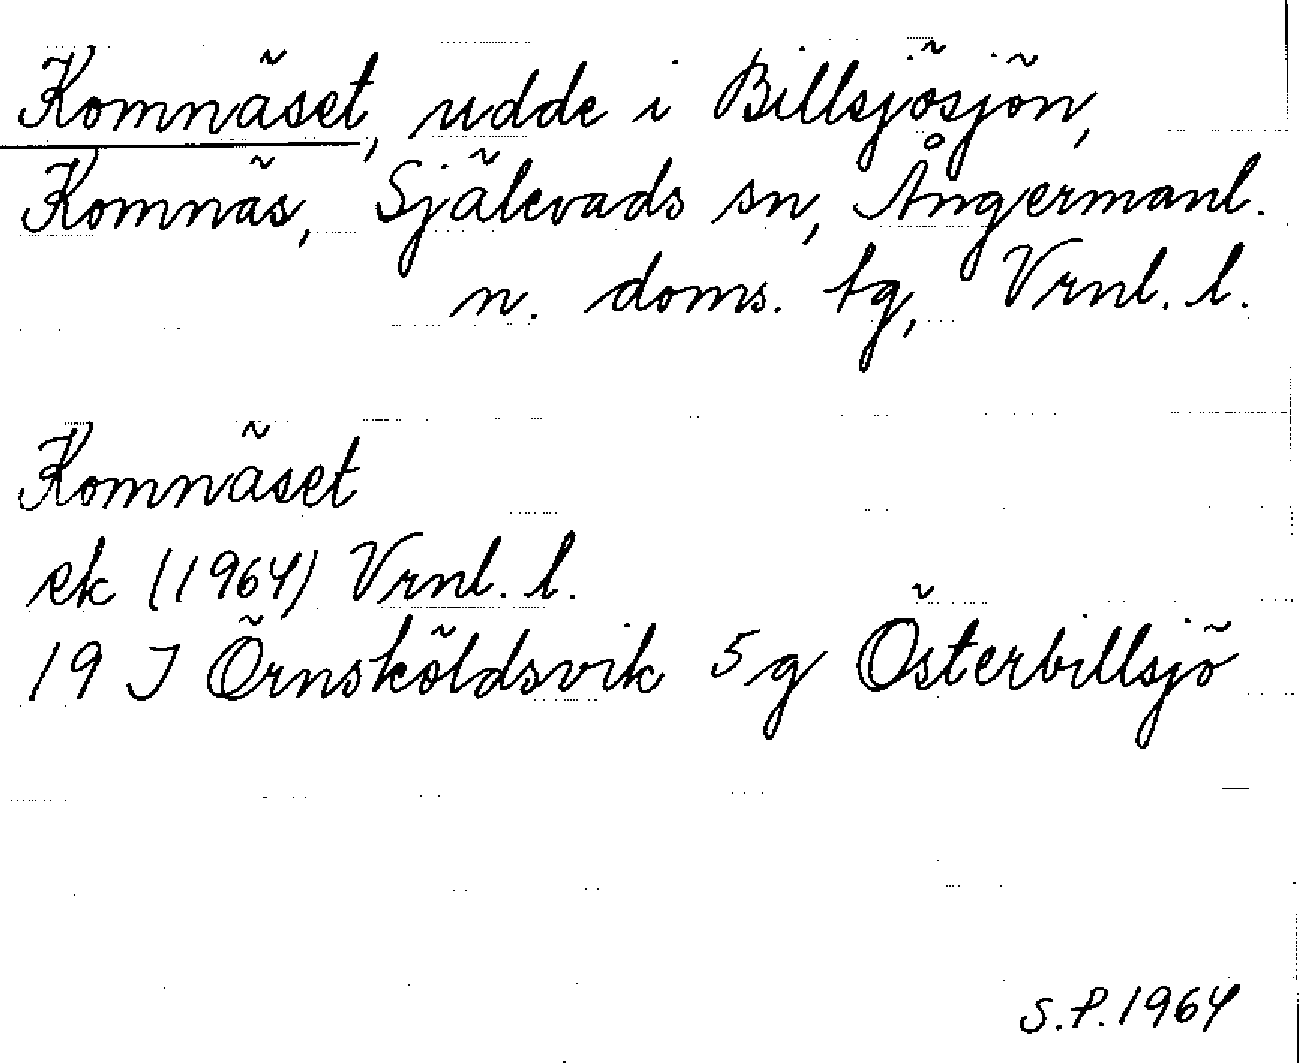 Komnäset, udde i Billsjösjön,
Komnäs, Själevads sn, Ångermanl.
n. doms. tg, Vrnl. l.
Komnäset
ek (1964) Vrnl. l.
19 J Örnsköldsvik 5 g Österbillsjö
S.P. 1964